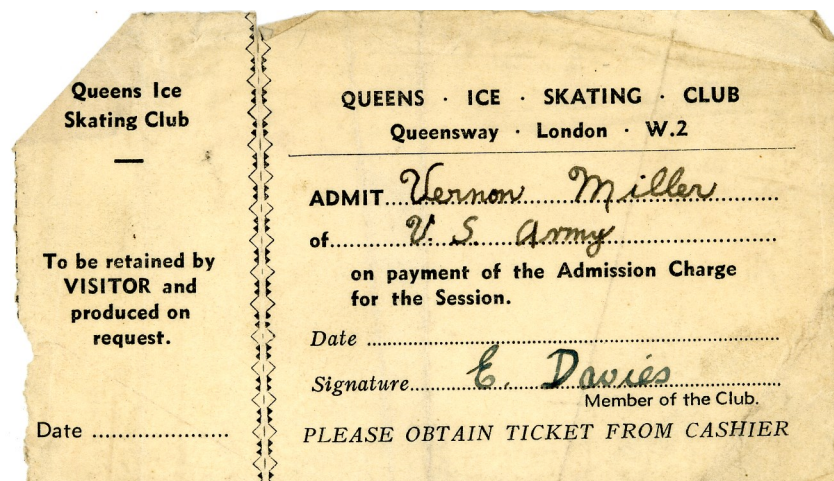 Queens Ice
Skating Club
To be retained by
VISITOR and
produced on
request.
Date ........................
QUEENS · ICE · SKATING · CLUB
Queensway · London · W.2
ADMIT Vernon Miller
of U.S. Army
on payment of the Admission Charge
for the Session.
Date ........................
Signature E. Davies
Member of the Club.
PLEASE OBTAIN TICKET FROM CASHIER